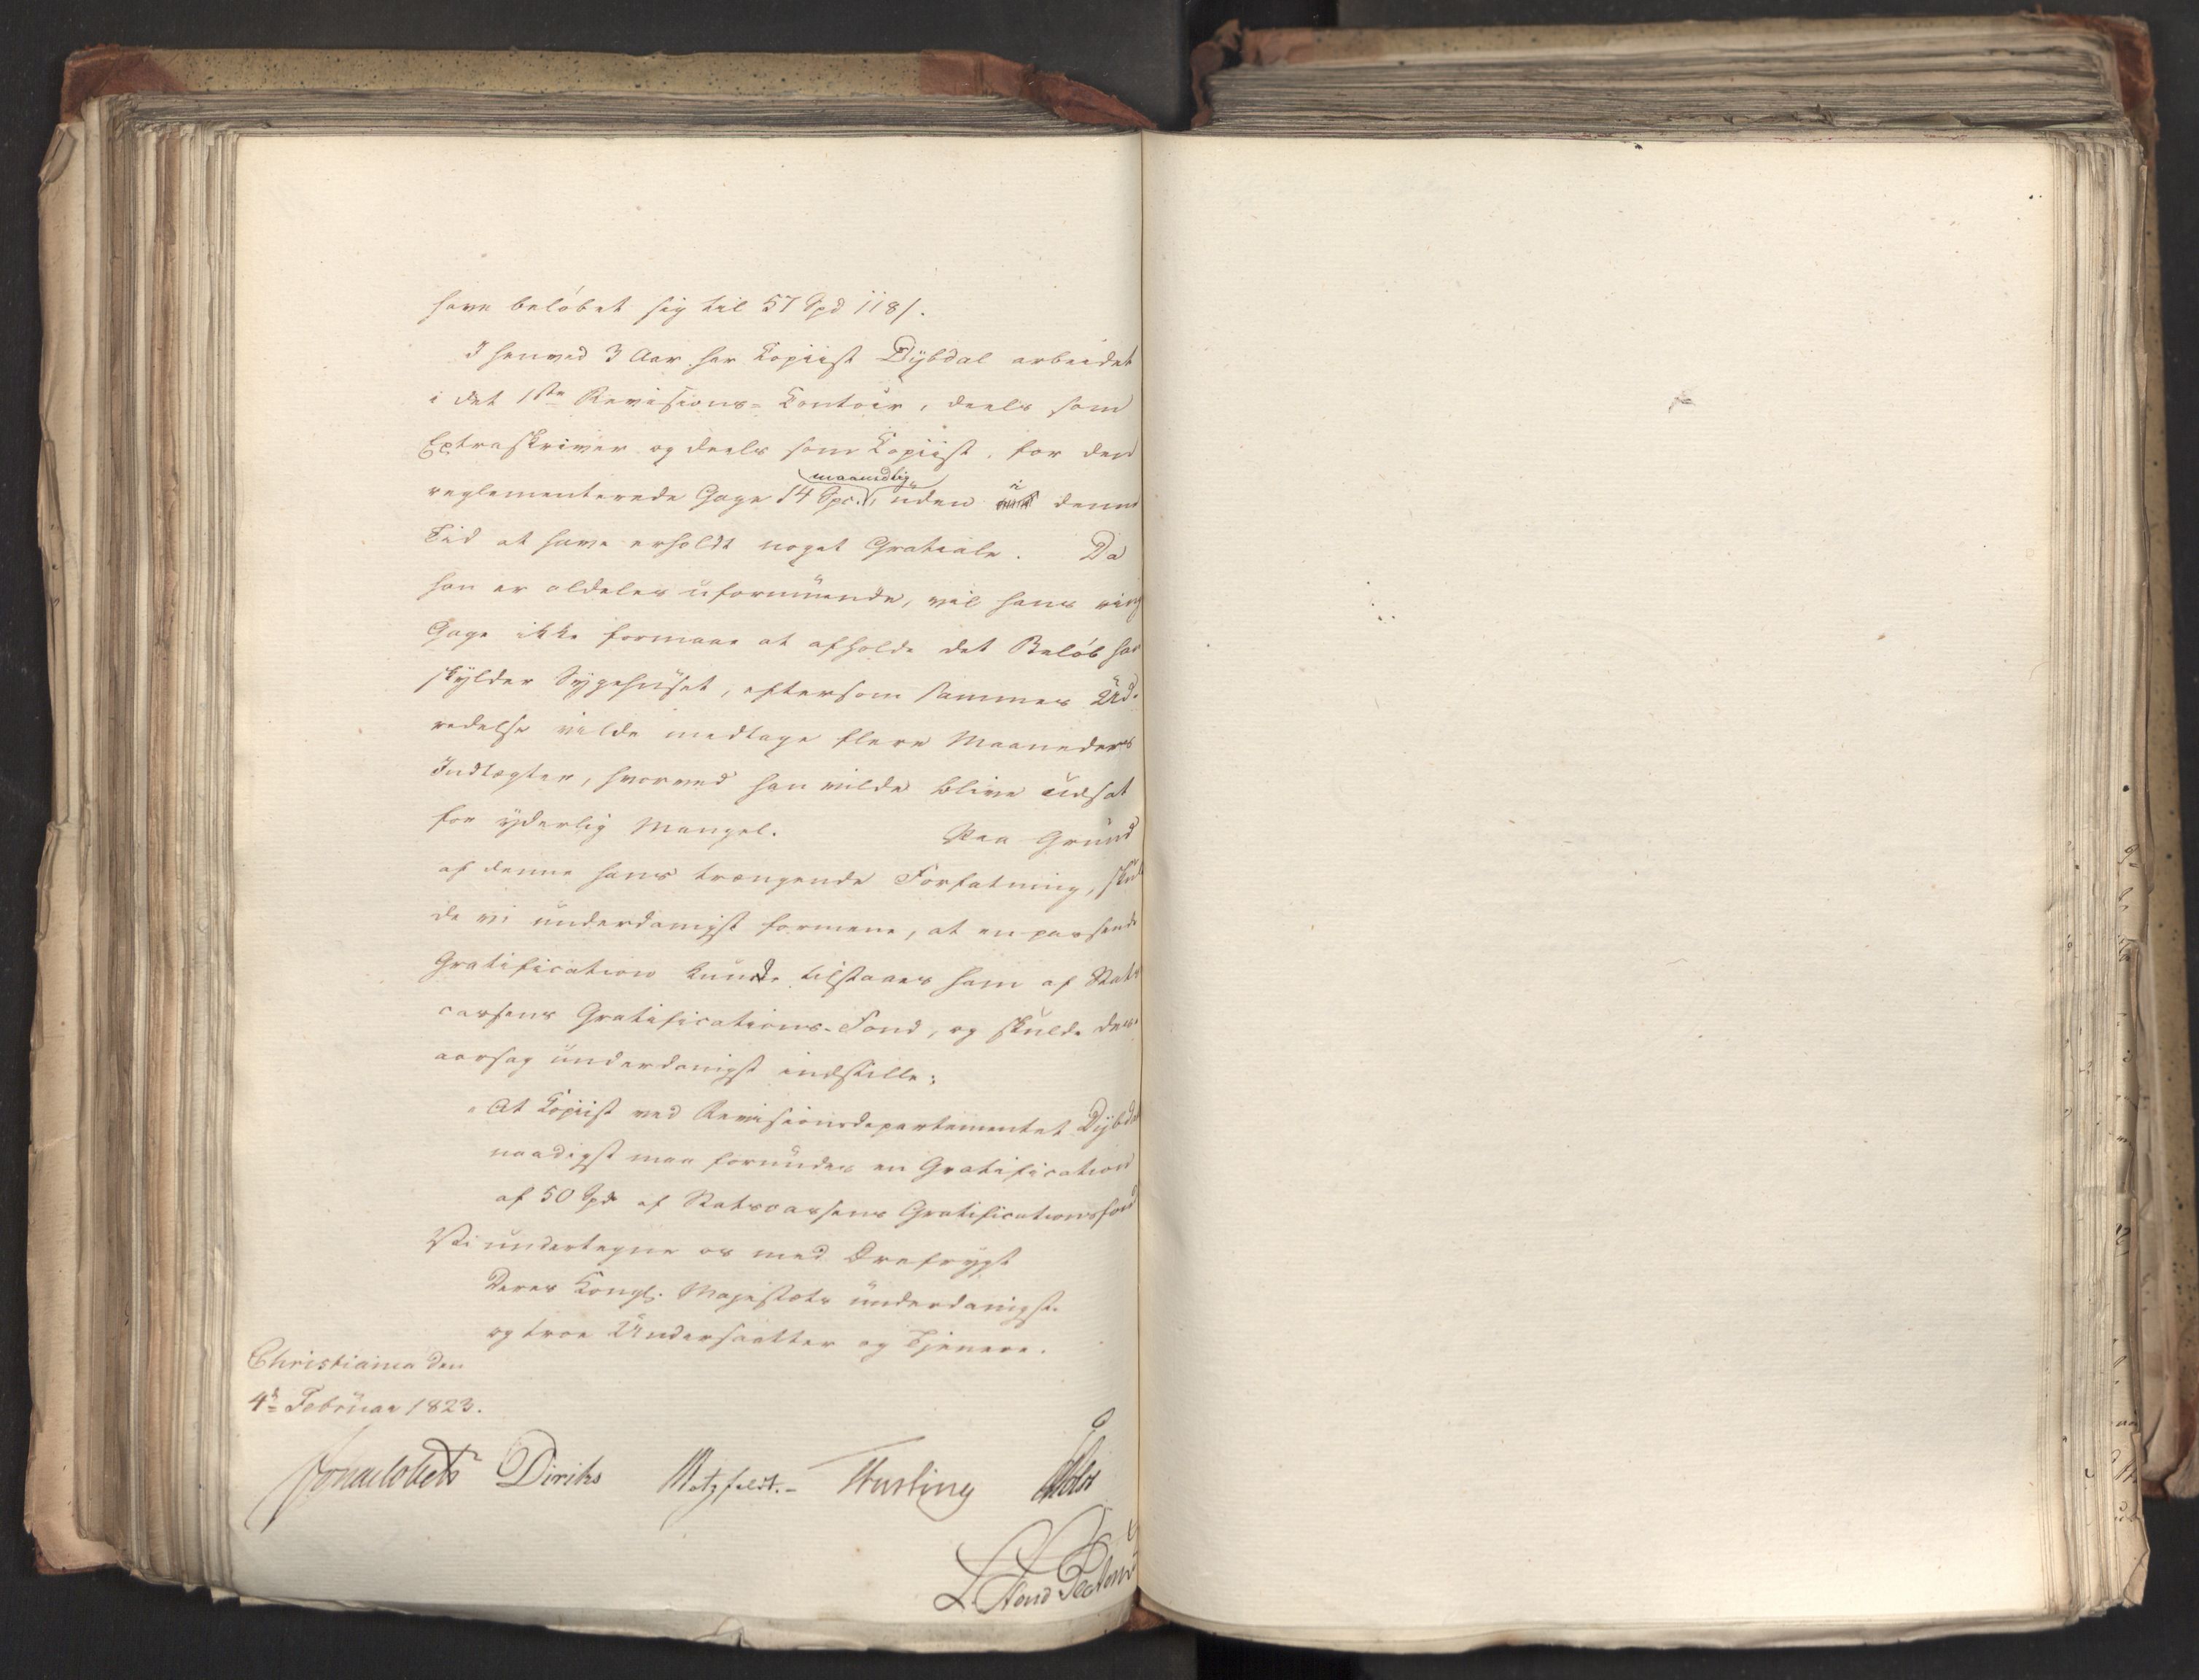 have beløbet sig til 57 Spd 118 s.
I henved 3 Aar har Kopiist Dybdal arbeidet
i det 1ste Revisions-Kontoir, deels som
Extraskriver og deels som Kopiist, for den
maanedlig
reglementerede Gage 14 Spd., uden i denne
Tid at have erholdt noget Gratiale. Da
han er aldeles uformuende, vil hans ring
Gage ikke formaae at afholde det Beløb han
skylder Sygehuset, eftersom sammes Ud-
redelse vilde medtage flere Maaneders
Indtægter, hvorved han vilde blive udsat
for yderlig Mangel. Paa Grund
af denne hans trængende Forfatning, skul
de vi underdanigst formene, at en passende
Gratification kunde tilstaaes ham af Stats
cassens Gratifications-Fond, og skulde des-
aarsag underdanigst indstille:
"At Kopiist ved Revisionsdepartementet Dybdal
naadigst maa forundes en Gratification
af 50 Spd af Statscassens Gratificationsfond
Vi undertegne os med Ærefrygt
Deres Kongl. Majestæts underdanigste
og troe Undersaatter og Tjenere.
Christiania den
4de Februar 1823.
Sommerhielm Diriks Motzfeldt.- Fasting Holst
L. Stoud Platou